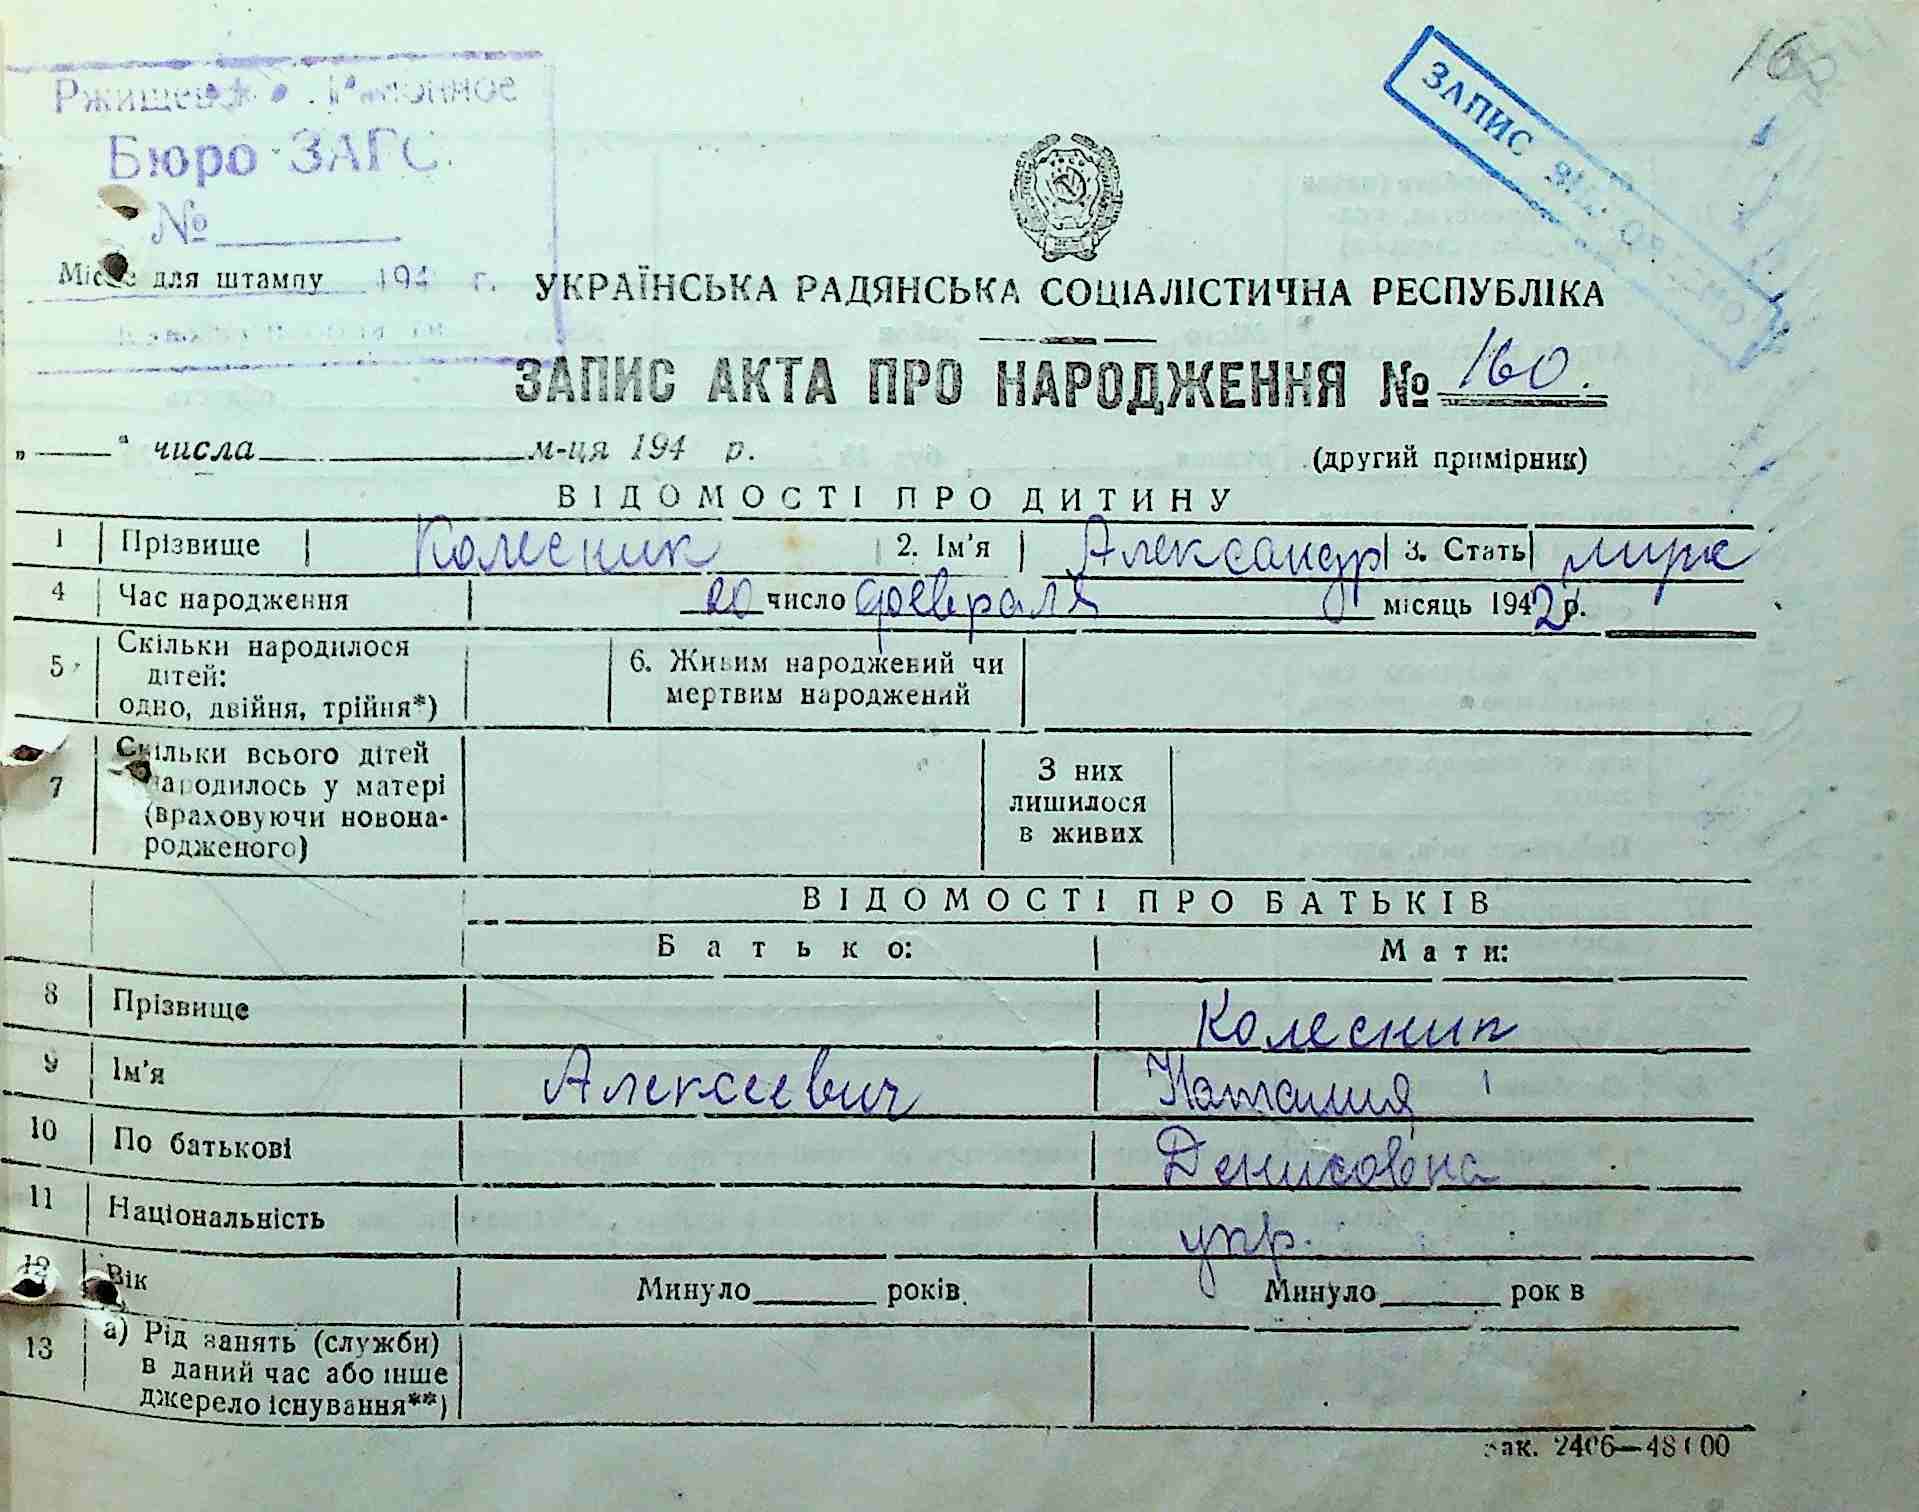 160
Бюро ЗАГС.
№
ЗАПИС
Місце для штампу 194 г.
УКРАЇНСЬКА РАДЯНСЬКА СОЦІАЛІСТИЧНА РЕСПУБЛІКА
ЗАПИС АКТА ПРО НАРОДЖЕННЯ № 160.
„ “ числа м-ця 194 р. (другий примірник)
ВІДОМОСТІ ПРО ДИТИНУ
1 Прізвище Колесник 2. Ім'я Александр 3. Стать муж
4 Час народження 20 число февраля місяць 1942 р.
5 Скільки народилося дітей: одно, двійня, трійня*) 6. Живим народжений чи мертвим народжений
7 Скільки всього дітей народилось у матері (враховуючи новона-родженого) З них лишилося в живих
ВІДОМОСТІ ПРО БАТЬКІВ
Батько: Мати:
8 Прізвище Колесник
9 Ім'я Алексеевич Наталия
10 По батькові Денисовна
11 Національність укр.
12 Вік Минуло років. Минуло рок в
13 а) Рід занять (служби) в даний час або інше джерело існування**)
зак. 2406—48100